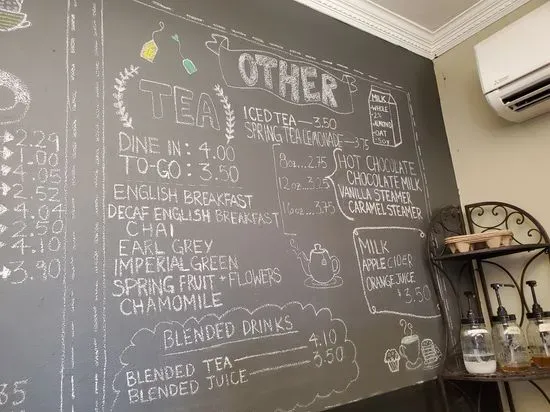 2.29
1.00
4.05
2.52
4.04
2.50
4.10
3.90
TEA
DINE IN: 4.00
TO-GO: 3.50
ENGLISH BREAKFAST
DECAF ENGLISH BREAKFAST
CHAI
EARL GREY
IMPERIAL GREEN
SPRING FRUIT + FLOWERS
CHAMOMILE
OTHER
ICED TEA — 3.50
SPRING TEA LEMONADE — 3.75
MILK
WHOLE
2%
ALMOND
OAT
SOY
8oz...2.75
12oz...3.25
16oz...3.75
HOT CHOCOLATE
CHOCOLATE MILK
VANILLA STEAMER
CARAMEL STEAMER
MILK
APPLE CIDER
ORANGE JUICE
$3.50
BLENDED DRINKS
4.10
BLENDED TEA — 3.50
BLENDED JUICE